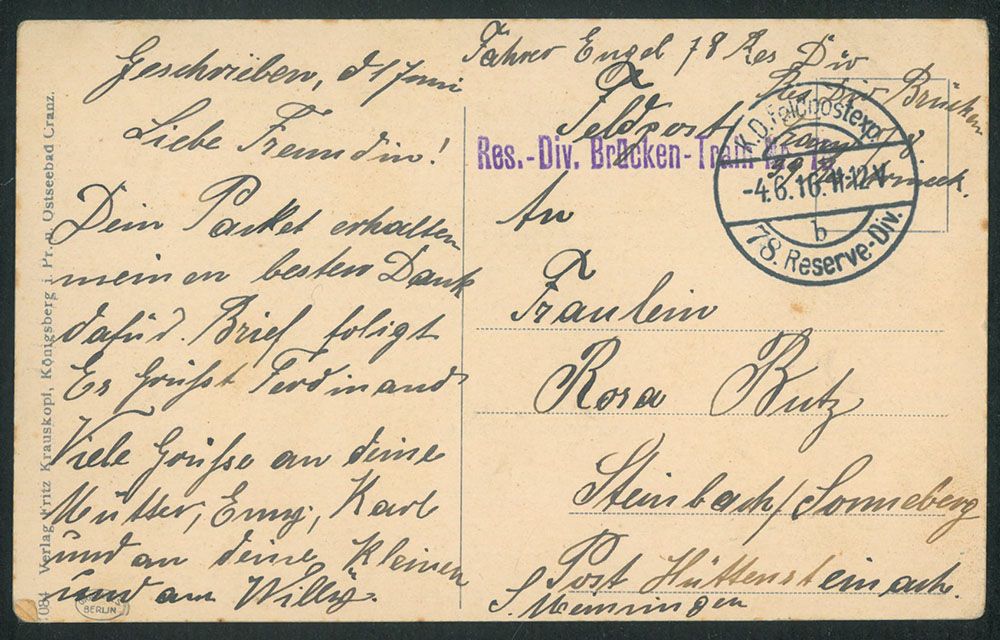 Geschrieben, d 1 Juni
Liebe Freundin!
Dein Parket erhalten
meinen besten Dank
dafür. Brief folgt
Es Grüßt Ferdinand
Viele Grüße an deine
Mutter, Emy, Karl
und an deine Kleinen
und am Willy.
Fahrer Engel 78 Res Div
Res Div Brücken
Feldpost
Res.-Div. Brücken-Train
K.D. Feldpostexp.
-4.6.16. 11-12 V
b
78. Reserve-Div.
An
Fraulein
Rosa Butz
Steinbach/Sonneberg
Post Hüttensteinach.
S. Meiningen
1084 Verlag Fritz Krauskopf, Königsberg i. Pr. u. Ostseebad Cranz.
BERLIN